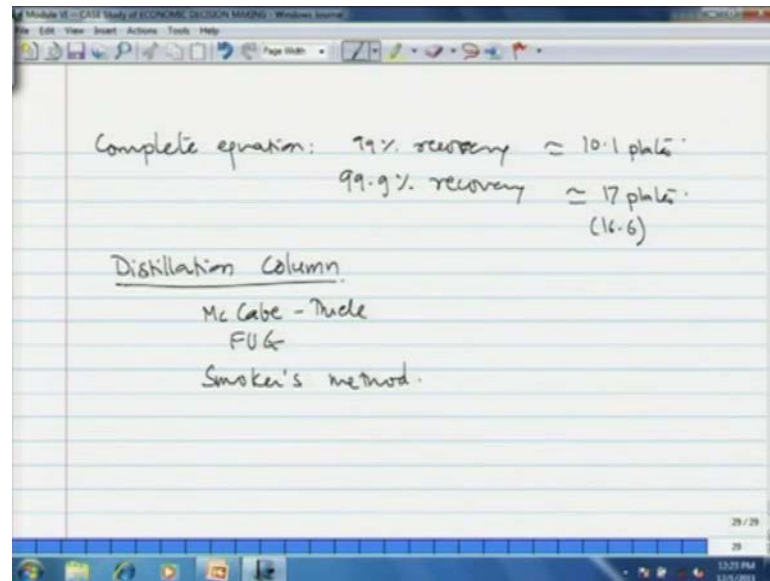 Module VI - CASE Study of ECONOMIC DECISION MAKING - Windows Journal
File Edit View Insert Actions Tools Help
Page Width
Complete equation: 99% recovery ≃ 10.1 plates.
99.9% recovery ≃ 17 plates.
(16.6)
Distillation Column
Mc Cabe - Thiele
FUG
Smoker's method.
29 / 29
29
12:23 PM
12/1/2011